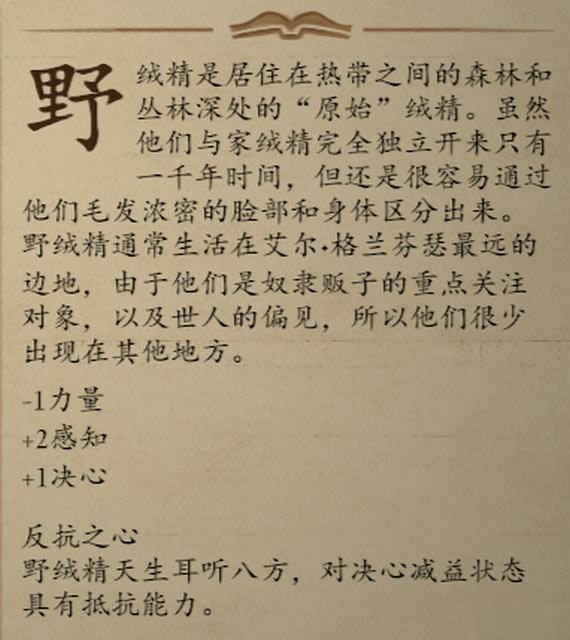 野绒精是居住在热带之间的森林和
丛林深处的“原始”绒精。虽然
他们与家绒精完全独立开来只有
一千年时间，但还是很容易通过
他们毛发浓密的脸部和身体区分出来。
野绒精通常生活在艾尔·格兰芬瑟最远的
边地，由于他们是奴隶贩子的重点关注
对象，以及世人的偏见，所以他们很少
出现在其他地方。
-1力量
+2感知
+1决心
反抗之心
野绒精天生耳听八方，对决心减益状态
具有抵抗能力。